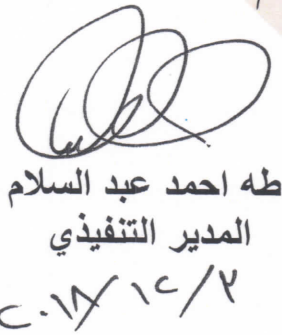 طه احمد عبد السلام
المدير التنفيذي
٢٠١٨/١٢/٢